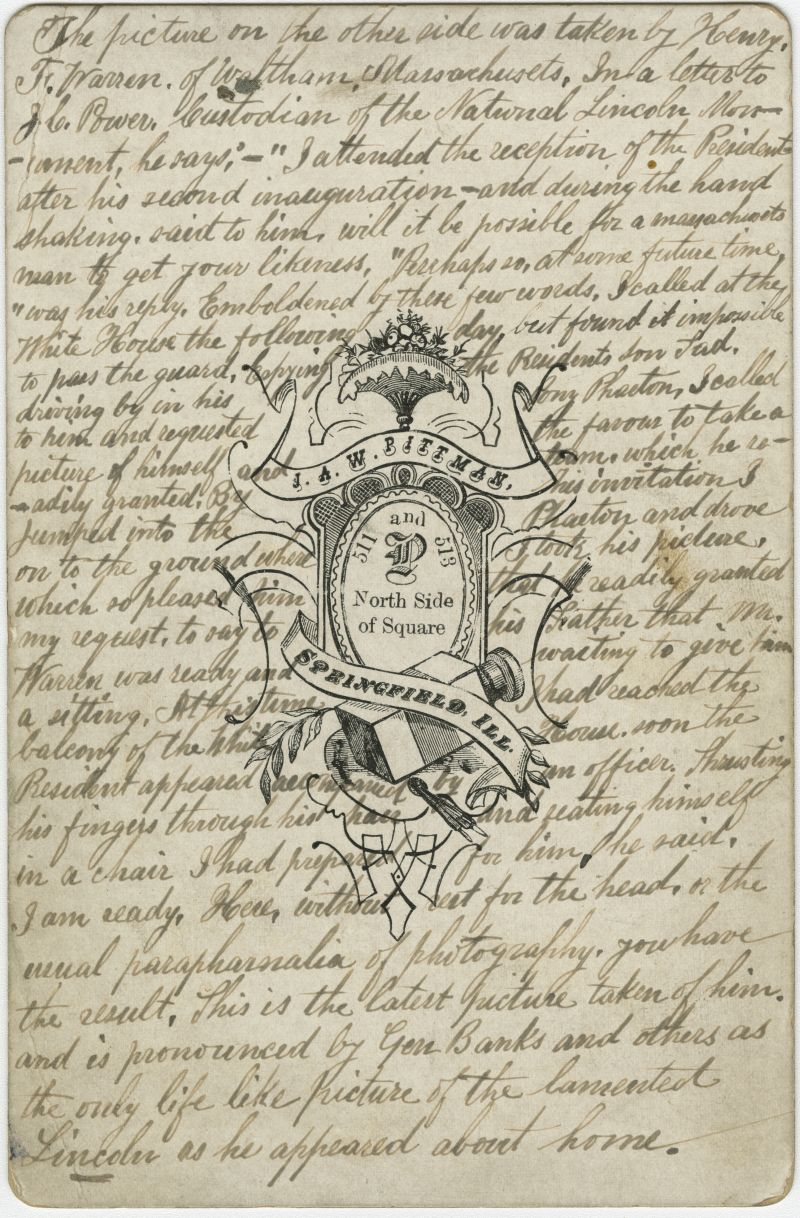 The picture on the other side was taken by Henry.
F. Warren. of Waltham, Massachusets. In a letter to
J. C. Power. Custodian of the National Lincoln Mon-
-ument, he says; - " I attended the reception of the President
after his second inauguration - and during the hand
shaking. said to him, will it be possible for a massachusets
man to get your likeness, "Perhaps so, at some future time,
"was his reply. Emboldened by these few words, I called at the
White House the following day, but found it impossible
to pass the guard, Espying the Presidents son Tad.
driving by in his Pony Phaeton, I called
to him and requested the favour to take a
picture of himself and team. which he re-
-adily granted. By his invitation I
Jumped into the Phaeton and drove
on to the ground where I took his picture,
which so pleased him that he readily granted
my request, to say to his Father that Mr.
Warren was ready and waiting to give him
a sitting. At this time I had reached the
balcony of the White House. soon the
President appeared accompanied by an officer. Thrusting
his fingers through his hair and seating himself
in a chair I had prepared for him, he said.
I am ready. Here, without rest for the head. or the
usual parapharnalia of photography. you have
the result. This is the latest picture taken of him.
and is pronounced by Gen Banks and others as
the only life like picture of the lamented
Lincoln as he appeared about home.
J. A. W. PITTMAN,
511 and 513
North Side
of Square
SPRINGFIELD, ILL.